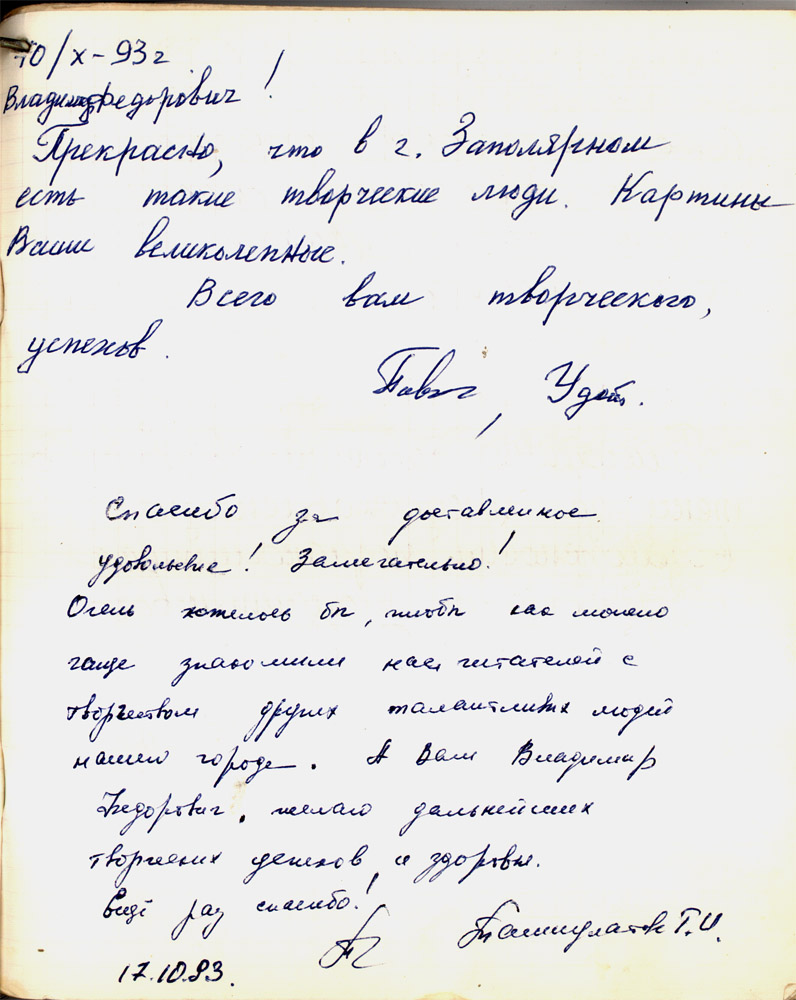 10/X-93г
Владимир Федорович!
Прекрасно, что в г. Заполярном
есть такие творческие люди. Картины
Ваши великолепные.
Всего вам творческого,
успехов.
Спасибо за доставленное
удовольствие! Замечательно!
Очень хотелось бы, чтобы как можно
чаще знакомили нас читателей с
творчеством других талантливых людей
нашего города. А Вам Владимир
Федорович, желаю дальнейших
творческих успехов, и здоровья.
Ещё раз спасибо!
Т.И.
17.10.93.